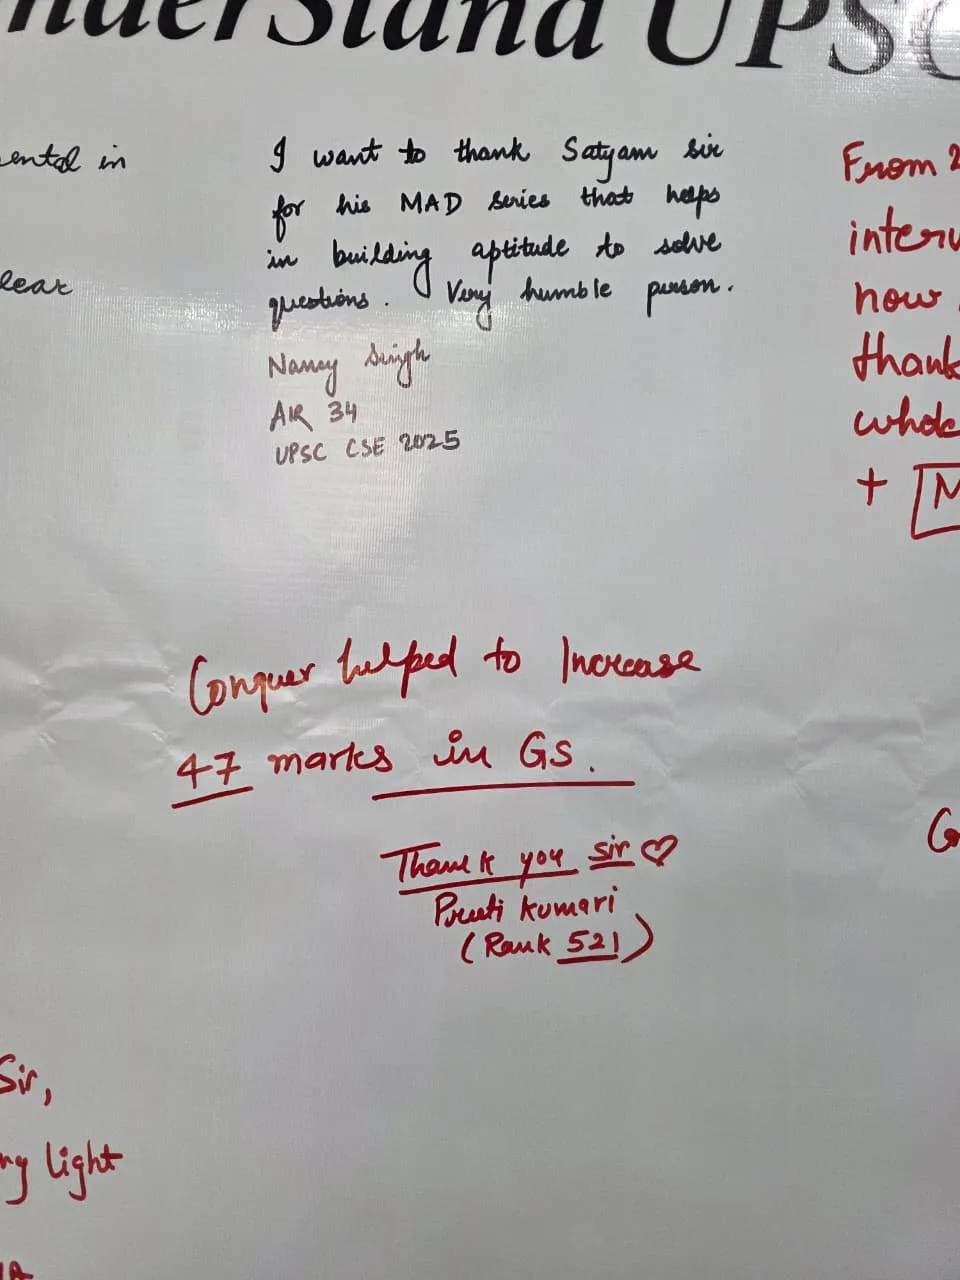 UnderStand UPSC
ental in
lear
I want to thank Satyam sir
for his MAD series that helps
in building aptitude to solve
questions. Very humble person.
Nancy Singh
AIR 34
UPSC CSE 2025
From 2
interv
now
thank
whole
+ M
Conquer helped to Increase
47 marks in GS.
Thank you sir ♡
Preeti Kumari
(Rank 521)
G
Sir,
ny light
IA